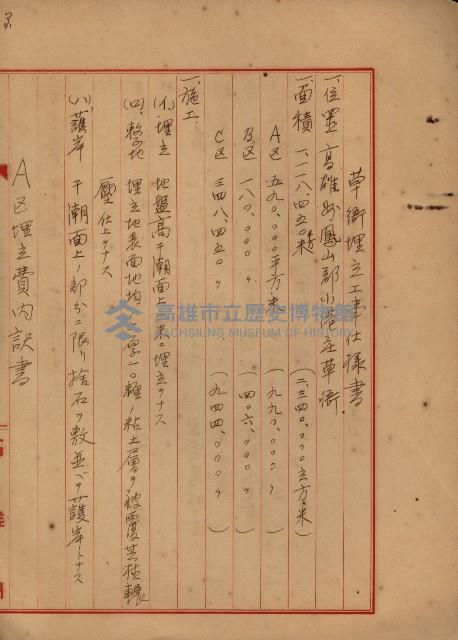 草衙埋立工事仕様書
一、位置 高雄州鳳山郡小港庄草衙
一、面積 一、一一八、四五〇平方米 (二、三四〇、〇〇〇立方米)
A区 五九〇、〇〇〇平方米 (九九〇、〇〇〇〃)
B区 一八〇、〇〇〇〃 (四〇六、〇〇〇〃)
C区 三四八、四五〇〃 (九四四、〇〇〇〃)
一、施工
(イ)、埋立 地盤高干潮面上 米ニ埋立ヲナス
(ロ)、整地 埋立地表面地均 厚一〇糎ノ粘土層ヲ被覆其 轉
壓仕上ヲナス
(ハ)、護岸 干潮面上ノ部分ニ限リ捨石ヲ敷並ベテ護岸トナス
A区埋立費内訳書
高雄市立歷史博物館
KAOHSIUNG MUSEUM OF HISTORY